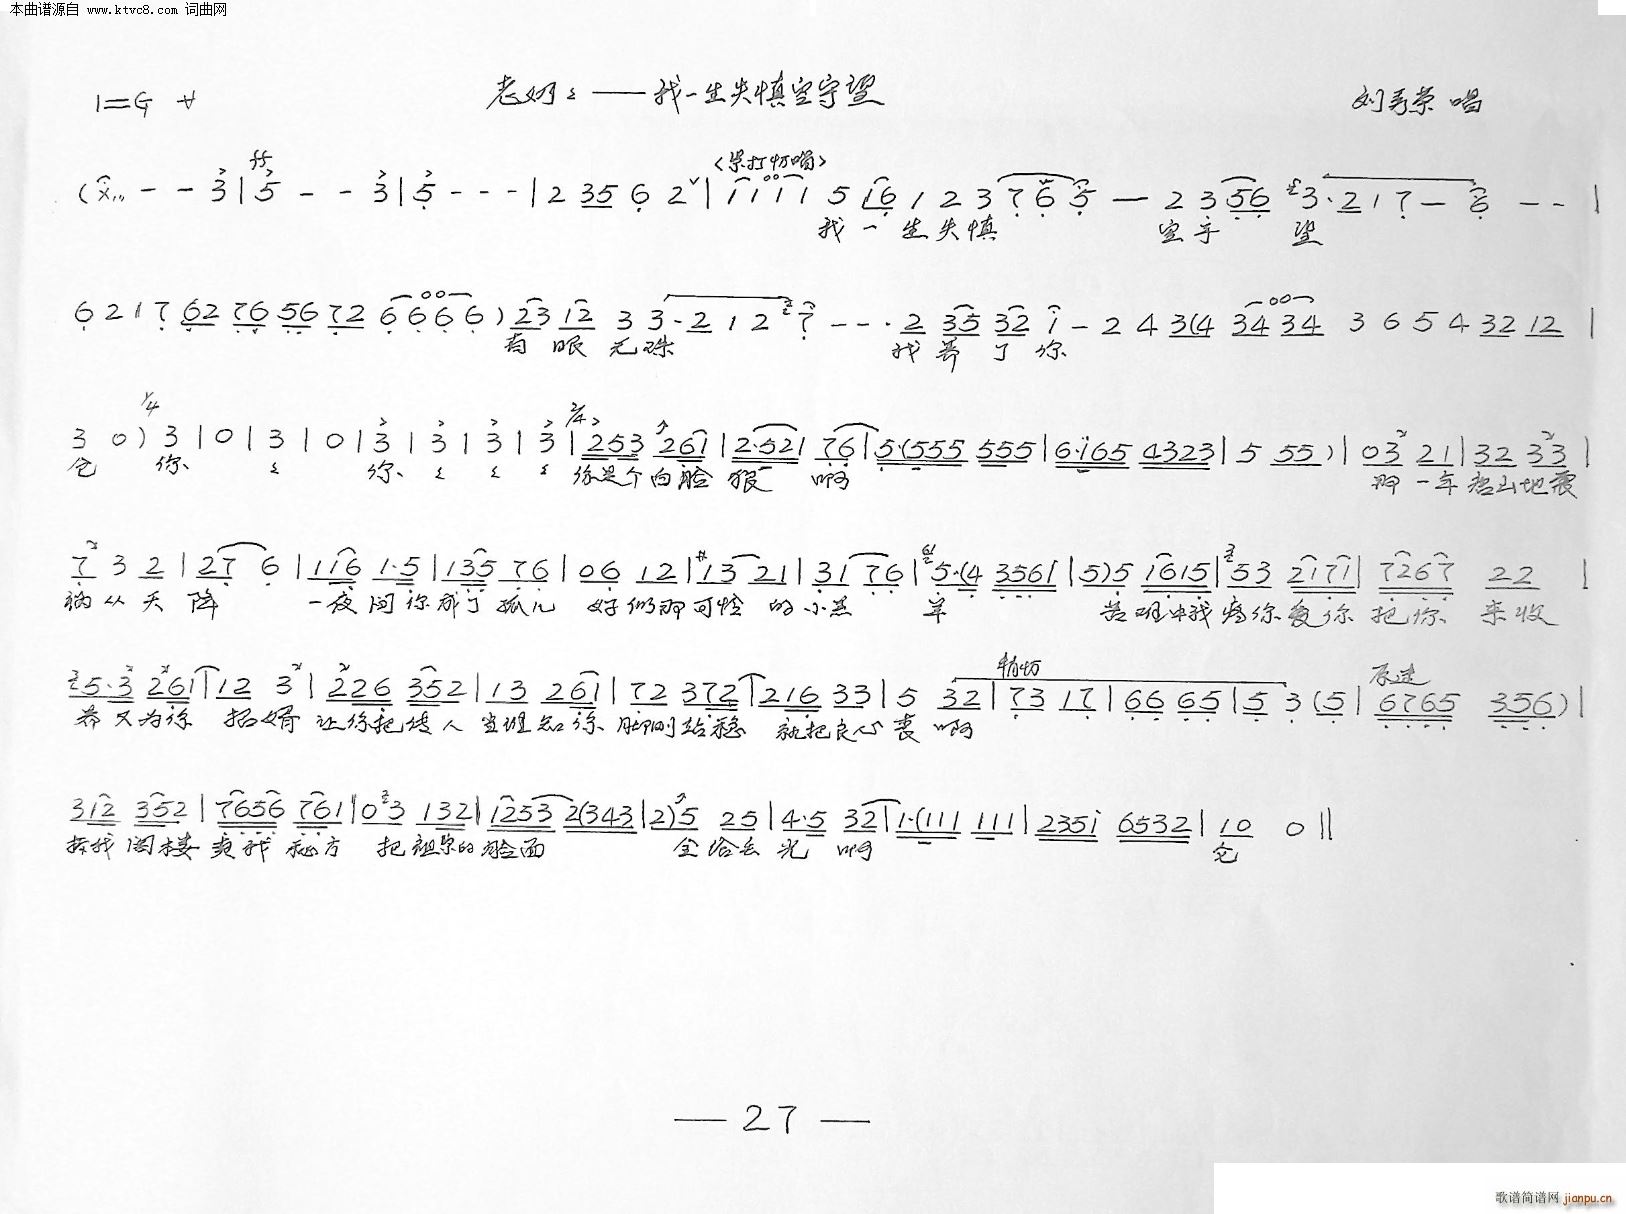 本曲谱源自 www.ktvc8.com 词曲网
1=G
老奶〻——我一生失慎空守望
唱
(X - - 3|5 - - 3|5 - - -|2 35 6 2|1 1 1 1 5 16 1 2 3 7 6 5 — 2 3 56 3·2 1 7 — 6 - - |
我一生失慎 空守 望
6 2 1 7 62 76 56 72 6 6 6 6 ) 23 12 3 3·2 1 2 7 - - - · 2 35 32 1 - 2 4 3(4 34 34 3 6 5 4 32 12 |
有眼无珠 我养了你
1/4 2/4
3 0 ) 3 | 0 | 3 | 0 | 3 | 3 | 3 | 3 | 253 261 | 2·521 76 | 5·(555 555 | 6·165 4323 | 5 55 ) | 03 21 | 32 33 |
仓 你、〻 你、〻〻〻 你是个白脸狼 啊 那一年唐山地震
7 3 2 | 27 6 | 116 1·5 | 135 76 | 06 12 | 13 21 | 31 76 | 5·(4 3561 | 5)5 1615 | 53 2171 | 7267 22 |
祸从天降 一夜间你成了孤儿 好似那可怜的小羔羊 苦难中我疼你爱你把你 来收
5·3 261 | 12 3 | 226 352 | 13 261 | 72 372 | 216 33 | 5 32 | 73 17 | 66 65 | 5 3 (5 | 6765 356 ) |
养又为你 招婿 让你把传人 当 知你脚刚站稳 就把良心丧 啊
312 352 | 7656 761 | 03 132 | 1253 2(343 | 2)5 25 | 4·5 32 | 1·(111 111 | 2351 6532 | 10 0 ||
我阁楼 我秘方 把祖宗的脸面 全给丢光 啊 仓
— 27 —
歌谱简谱网 jianpu.cn